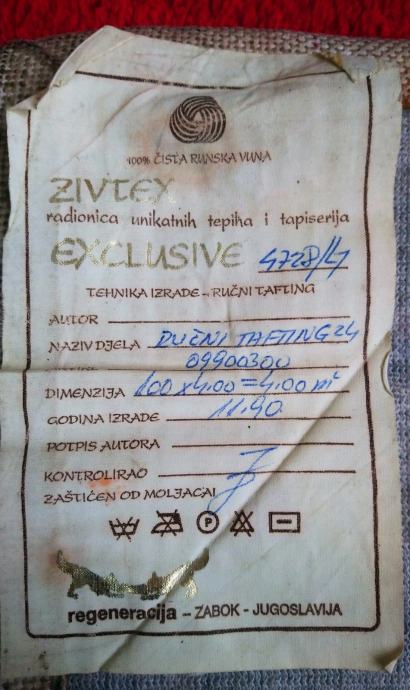 100% ČISTA RUNSKA VUNA
ZIVTEX
radionica unikatnih tepiha i tapiserija
EXCLUSIVE 4728/4
TEHNIKA IZRADE - RUČNI TAFTING
AUTOR
NAZIV DJELA RUČNI TAFTING 24
09900300
DIMENZIJA 100 x 4.00 = 4.00 m²
GODINA IZRADE 11.90.
POTPIS AUTORA
KONTROLIRAO
ZAŠTIĆEN OD MOLJACA
P
regeneracija - ZABOK - JUGOSLAVIJA